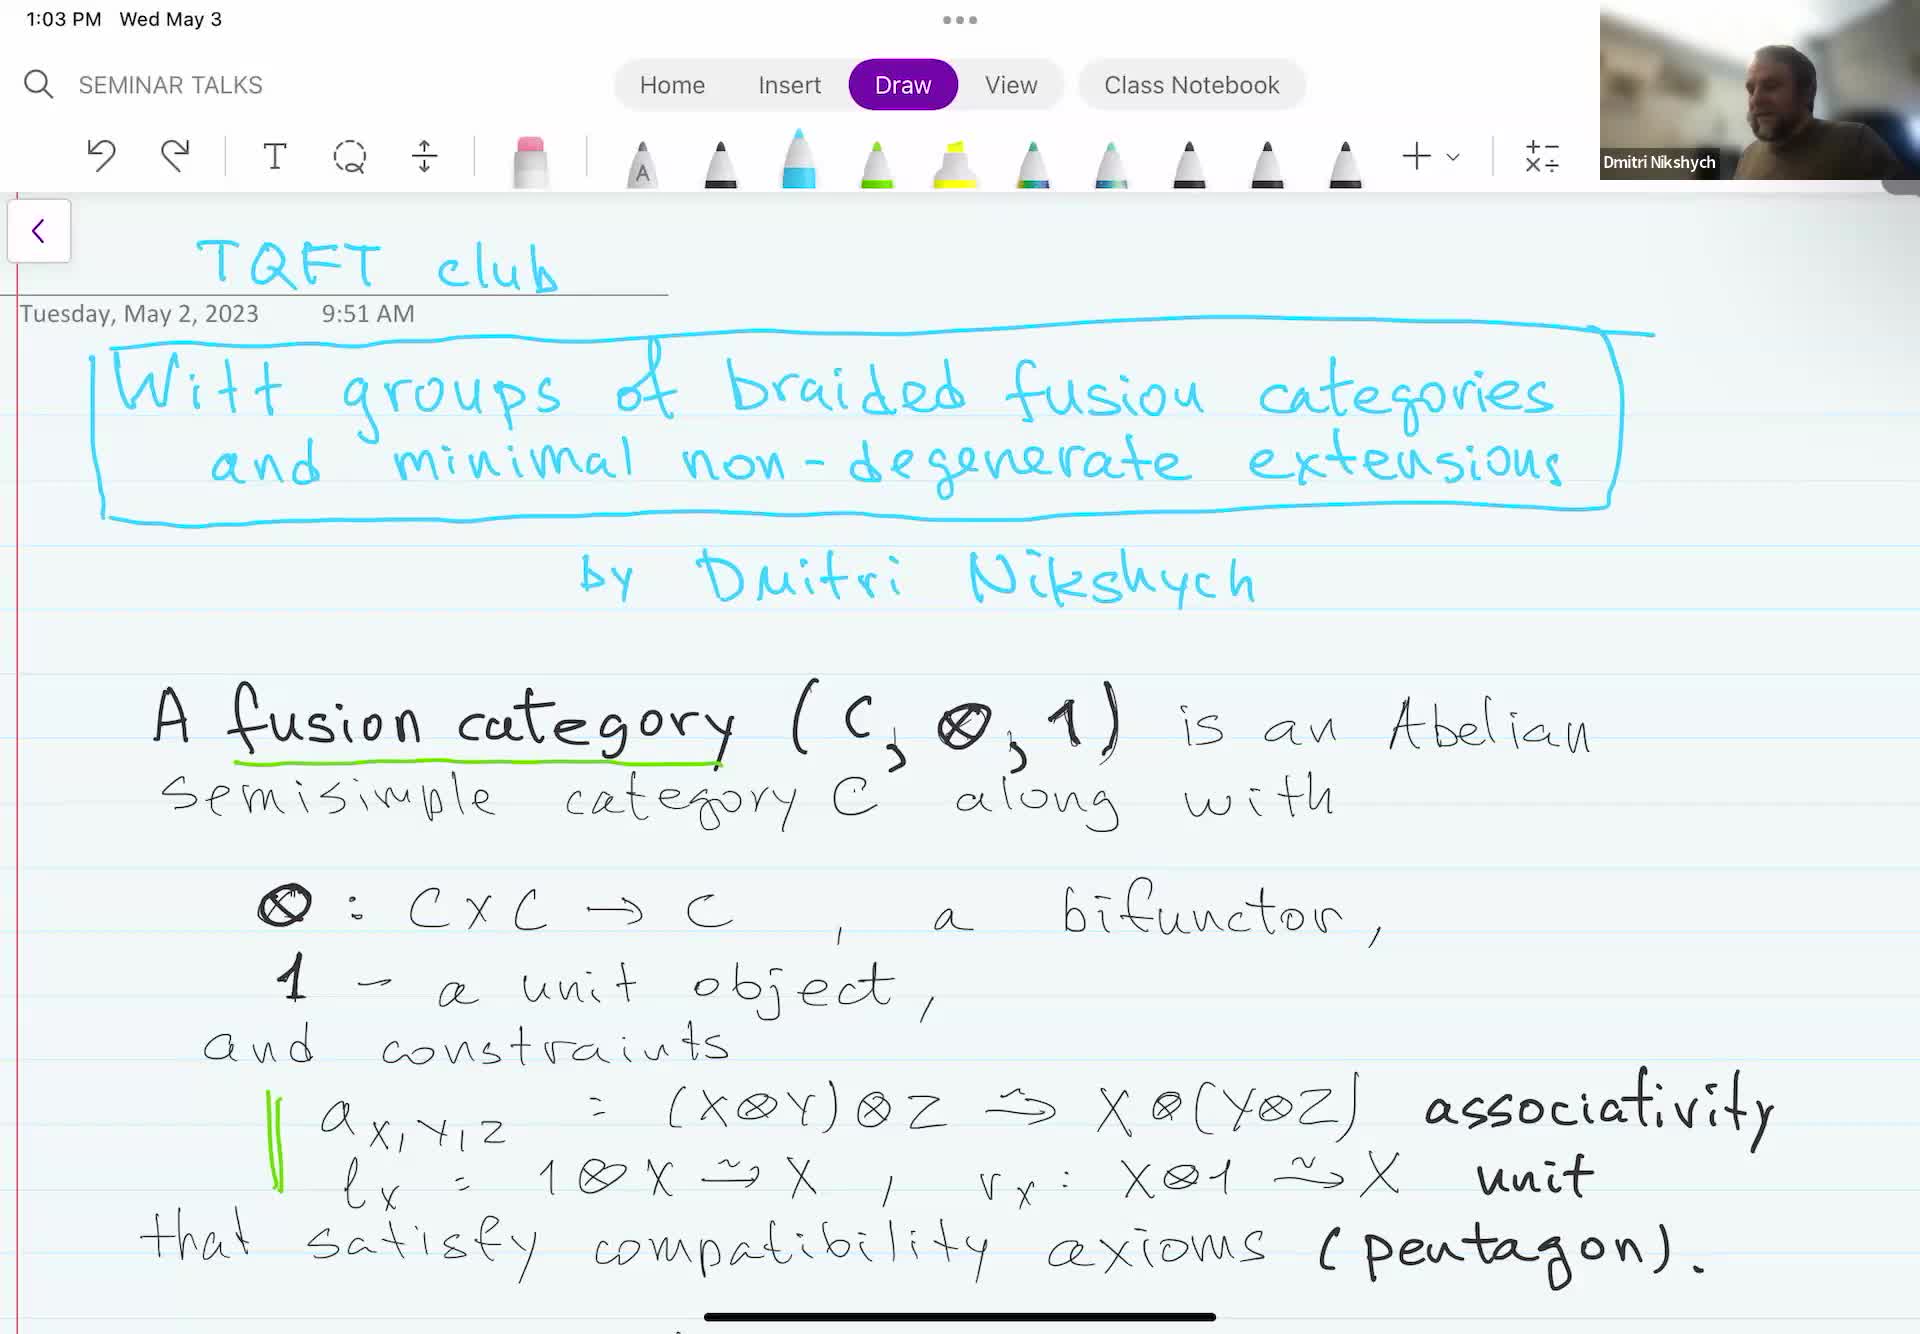 1:03 PM Wed May 3
SEMINAR TALKS
Home Insert Draw View Class Notebook
T
A
Dmitri Nikshych
TQFT club
Tuesday, May 2, 2023 9:51 AM
Witt groups of braided fusion categories
and minimal non-degenerate extensions
by Dmitri Nikshych
A fusion category (C, ⊗, 1) is an Abelian
semisimple category C along with
⊗ : C × C → C , a bifunctor,
1 - a unit object,
and constraints
a_{X,Y,Z} : (X⊗Y)⊗Z ⥲ X⊗(Y⊗Z) associativity
l_X : 1⊗X ⥲ X , r_X : X⊗1 ⥲ X unit
that satisfy compatibility axioms (pentagon).